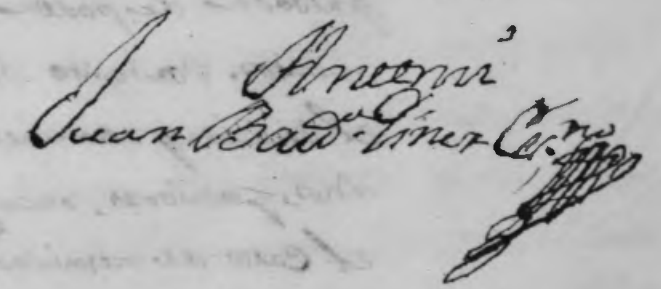 Antemi
Juan Baup.ta Giner Es.no